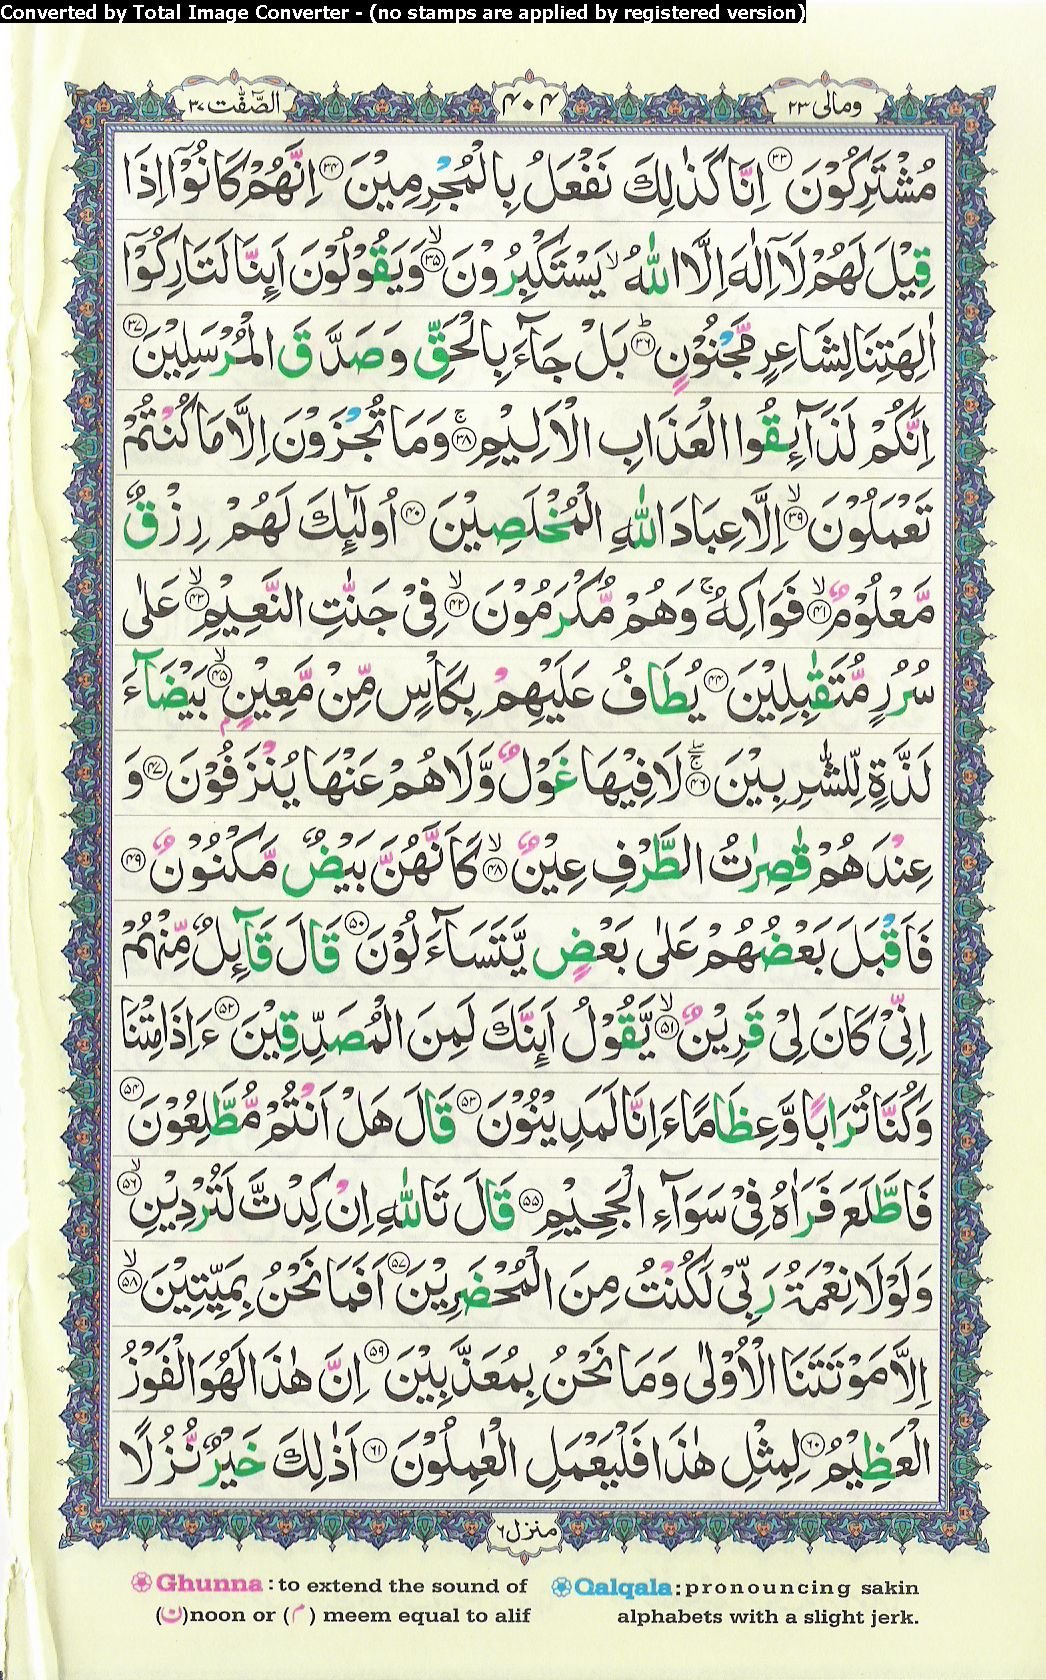 Converted by Total Image Converter - (no stamps are applied by registered version)
ومالی ۲۳ ۴۰۴ الصّٰٓفّٰت ۳۷
مُشْتَرِكُوْنَ ۳۳ اِنَّا كَذٰلِكَ نَفْعَلُ بِالْمُجْرِمِيْنَ ۳۴ اِنَّهُمْ كَانُوْٓا اِذَا
قِيْلَ لَهُمْ لَاۤ اِلٰهَ اِلَّا اللّٰهُ ۙ يَسْتَكْبِرُوْنَ ۙ۳۵ وَيَقُوْلُوْنَ اَىِٕنَّا لَتَارِكُوْٓا
اٰلِهَتِنَا لِشَاعِرٍ مَّجْنُوْنٍ ؕ۳۶ بَلْ جَآءَ بِالْحَقِّ وَصَدَّقَ الْمُرْسَلِيْنَ ۳۷
اِنَّكُمْ لَذَآىِٕقُوا الْعَذَابِ الْاَلِيْمِ ۚ۳۸ وَمَا تُجْزَوْنَ اِلَّا مَا كُنْتُمْ
تَعْمَلُوْنَ ۙ۳۹ اِلَّا عِبَادَ اللّٰهِ الْمُخْلَصِيْنَ ۴۰ اُولٰٓىِٕكَ لَهُمْ رِزْقٌ
مَّعْلُوْمٌ ۙ۴۱ فَوَاكِهُ ۚ وَهُمْ مُّكْرَمُوْنَ ۙ۴۲ فِيْ جَنّٰتِ النَّعِيْمِ ۙ۴۳ عَلٰى
سُرُرٍ مُّتَقٰبِلِيْنَ ۴۴ يُطَافُ عَلَيْهِمْ بِكَاْسٍ مِّنْ مَّعِيْنٍۭ ۙ۴۵ بَيْضَآءَ
لَذَّةٍ لِّلشّٰرِبِيْنَ ۚۖ۴۶ لَا فِيْهَا غَوْلٌ وَّلَا هُمْ عَنْهَا يُنْزَفُوْنَ ۴۷ وَ
عِنْدَهُمْ قٰصِرٰتُ الطَّرْفِ عِيْنٌ ۙ۴۸ كَاَنَّهُنَّ بَيْضٌ مَّكْنُوْنٌ ۴۹
فَاَقْبَلَ بَعْضُهُمْ عَلٰى بَعْضٍ يَّتَسَآءَلُوْنَ ۵۰ قَالَ قَآىِٕلٌ مِّنْهُمْ
اِنِّيْ كَانَ لِيْ قَرِيْنٌ ۙ۵۱ يَّقُوْلُ اَىِٕنَّكَ لَمِنَ الْمُصَدِّقِيْنَ ۵۲ ءَاِذَا مِتْنَا
وَكُنَّا تُرَابًا وَّعِظَامًا ءَاِنَّا لَمَدِيْنُوْنَ ۵۳ قَالَ هَلْ اَنْتُمْ مُّطَّلِعُوْنَ ۵۴
فَاطَّلَعَ فَرَاٰهُ فِيْ سَوَآءِ الْجَحِيْمِ ۵۵ قَالَ تَاللّٰهِ اِنْ كِدْتَّ لَتُرْدِيْنِ ۙ۵۶
وَلَوْلَا نِعْمَةُ رَبِّيْ لَكُنْتُ مِنَ الْمُحْضَرِيْنَ ۵۷ اَفَمَا نَحْنُ بِمَيِّتِيْنَ ۙ۵۸
اِلَّا مَوْتَتَنَا الْاُوْلٰى وَمَا نَحْنُ بِمُعَذَّبِيْنَ ۵۹ اِنَّ هٰذَا لَهُوَ الْفَوْزُ
الْعَظِيْمُ ۶۰ لِمِثْلِ هٰذَا فَلْيَعْمَلِ الْعٰمِلُوْنَ ۶۱ اَذٰلِكَ خَيْرٌ نُّزُلًا
منزل ۶
Ghunna : to extend the sound of (ن) noon or (م) meem equal to alif
Qalqala : pronouncing sakin alphabets with a slight jerk.